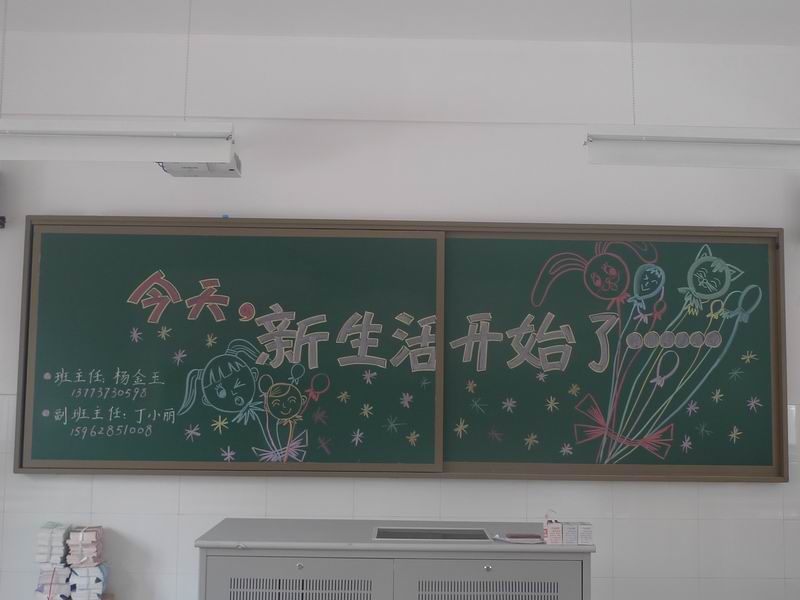 今天，新生活开始了……
班主任：杨金王
13773730598
副班主任：丁小丽
15962851008